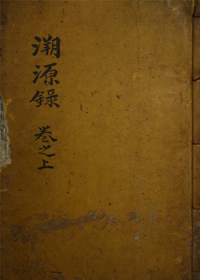 溯源錄 卷之上